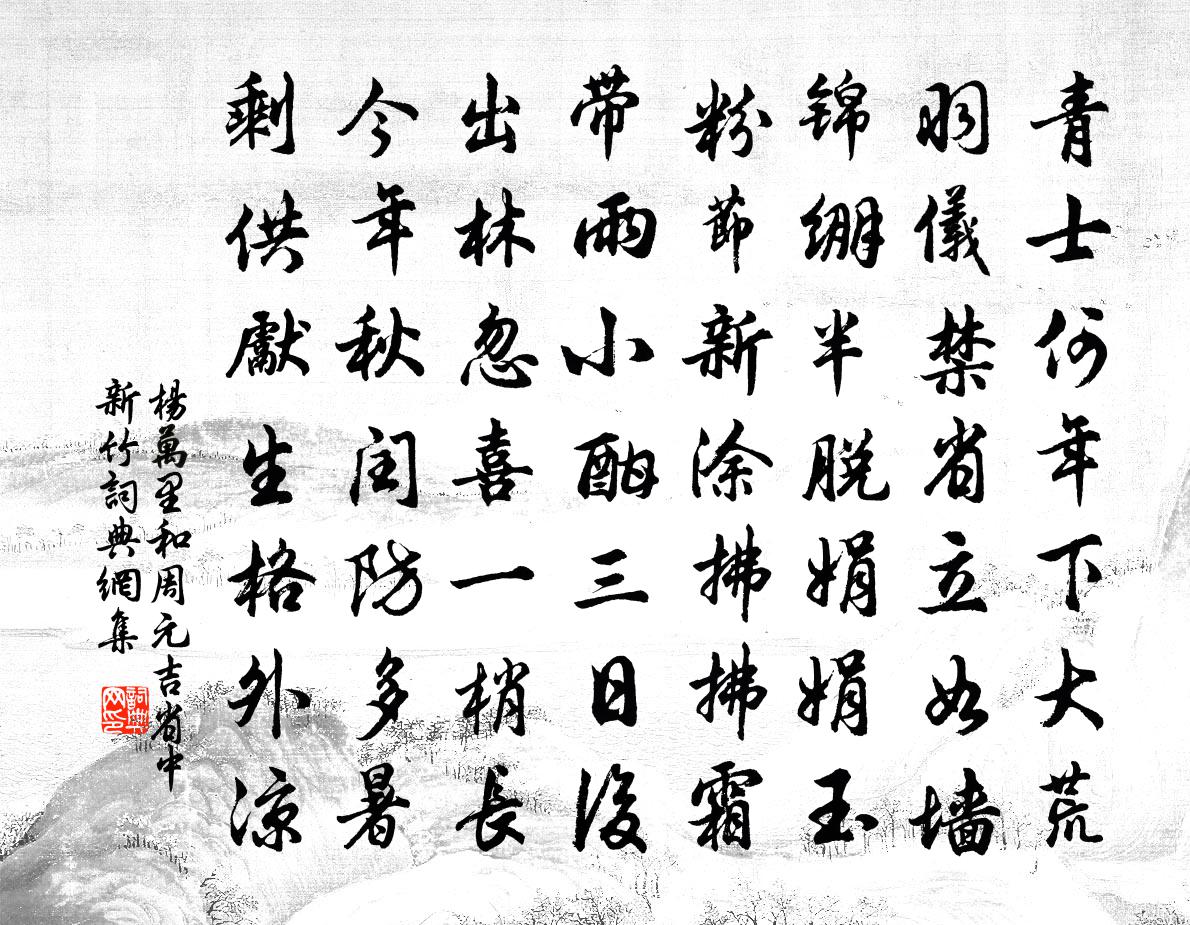 青士何年下大荒
羽儀禁省立如墻
锦绷半脱娟娟玉
粉節新涂拂拂霜
带雨小酣三日後
出林忽喜一梢長
今年秋闰防多暑
剩供獻生格外凉
楊萬里和周元吉省中
新竹詞典網集
詞典网印